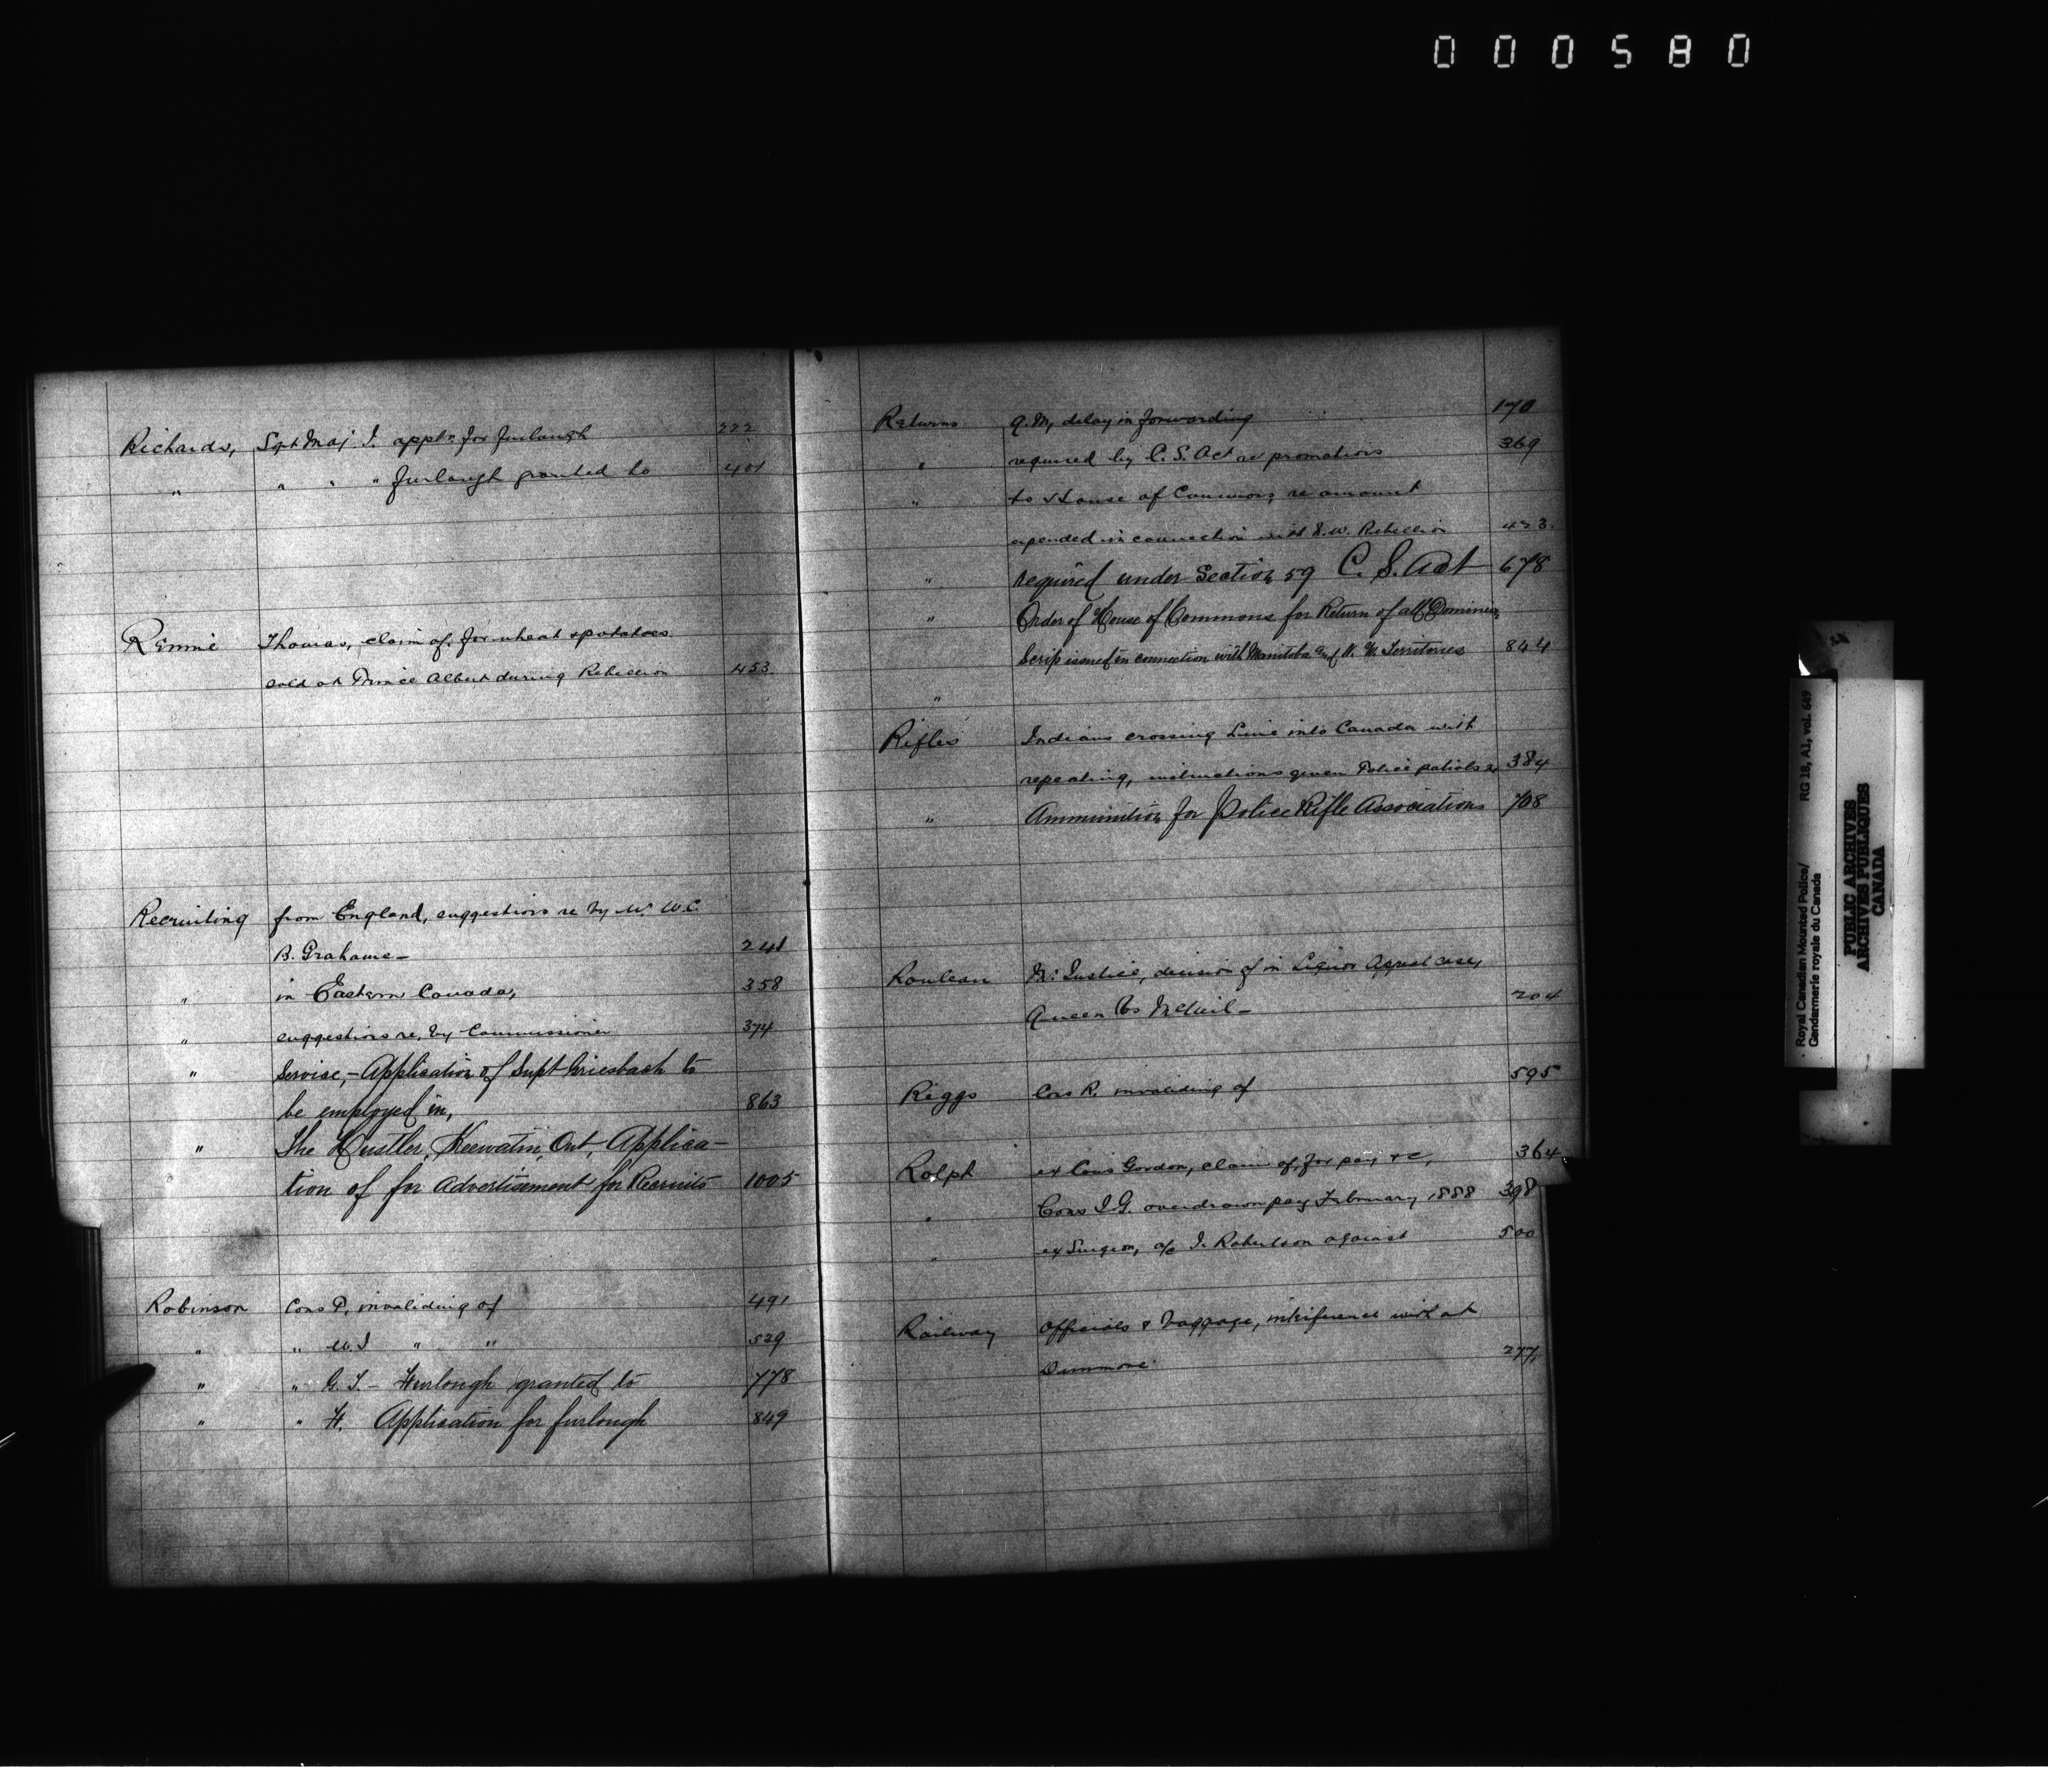 000580
Richards, Sgt Maj I. appln for furlough 222
" " " " furlough granted to 401
Rennie Thomas, claim of, for wheat & potatoes
sold at Prince Albert during Rebellion 453
Recruiting from England, suggestions re by Mr W.C.
B. Grahame — 241
" in Eastern Canada, 358
" suggestions re, by Commissioner 374
" Service, — Application of Supt Griesbach to
be employed in, 863
" The Hustler, Keewatin, Ont, Applica-
tion of for Advertisement for Recruits 1005
Robinson Cons P, invaliding of 491
" " W.I " " 529
" " G. T. — Furlough granted to 778
" " H. Application for furlough 849
Returns Q.M, delay in forwarding 170
" required by C. S. Act re promotions 369
" to House of Commons, re amount
expended in connection with N.W. Rebellion 433.
" required under Section 59 C. S. Act 678
" Order of House of Commons for Return of all Dominion
Scrip issued in connection with Manitoba and N. W. Territories 844
"
Rifles Indians crossing Line into Canada with
repeating, instructions given Police patrols re 384
" Ammunition for Police Rifle Associations 708
Rouleau Mr Justice, decision of in Liquor Appeal case,
Queen Vs McNeil — 204
Riggs Cons R. invaliding of 595
Rolph ex Cons Gordon, claim of, for pay &c, 364
" Cons I.G. overdrawn pay February 1888 398
" ex Surgeon, a/c I. Robertson against 500
Railway Officials & baggage, interference with at
Dunmore 277,
Royal Canadian Mounted Police/
Gendarmerie royale du Canada
RG 18, A1, vol. 649
PUBLIC ARCHIVES
ARCHIVES PUBLIQUES
CANADA